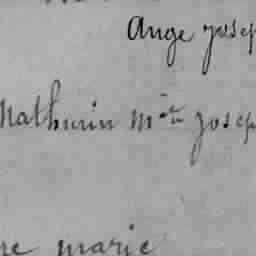 Ange Josep
Mathurin Mie Josep
ne marie